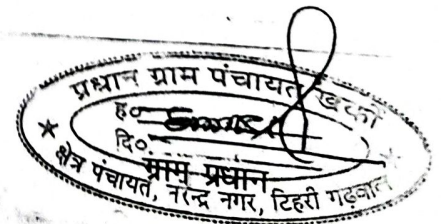 प्रधान ग्राम पंचायत खर्की
ह०
दि०
ग्राम प्रधान
क्षेत्र पंचायत, नरेन्द्र नगर, टिहरी गढ़वाल